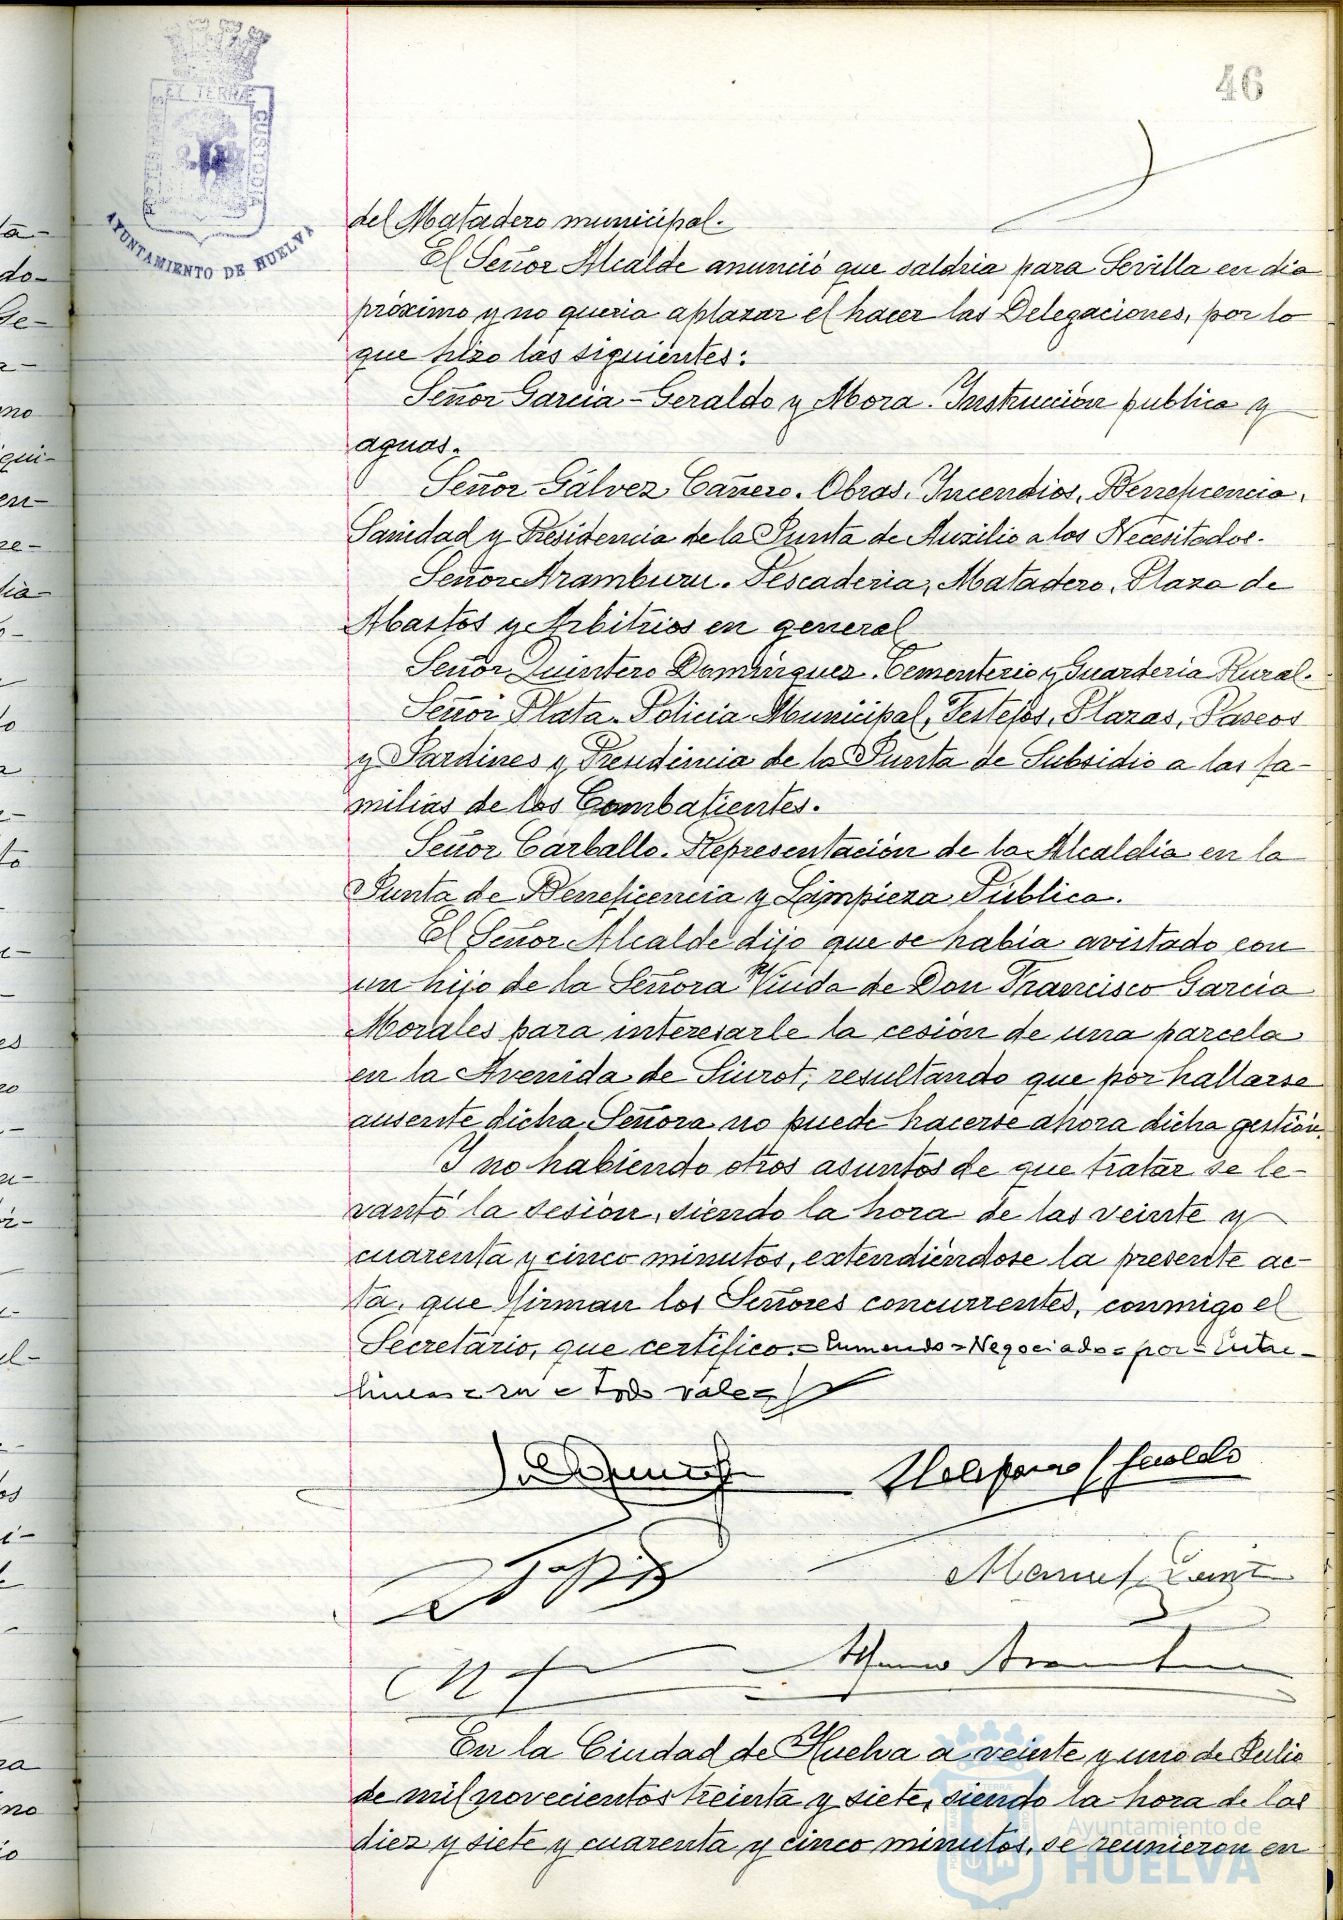 46
PORTUS MARIS ET TERRÆ CUSTODIA
AYUNTAMIENTO DE HUELVA
del Matadero municipal.
El Señor Alcalde anunció que saldria para Sevilla en dia
próximo y no queria aplazar el hacer las Delegaciones, por lo
que hizo las siguientes:
Señor Garcia-Geraldo y Mora. Instrucción publica y
aguas.
Señor Gálvez Cañero. Obras, Incendios, Beneficencia,
Sanidad y Presidencia de la Junta de Auxilio a los Necesitados.
Señor Aramburu. Pescaderia, Matadero, Plaza de
Abastos y Arbitrios en general
Señor Quintero Dominguez. Cementerio y Guarderia Rural.
Señor Plata. Policia Municipal, Festejos, Plazas, Paseos
y Jardines y Presidencia de la Junta de Subsidio a las fa-
milias de los Combatientes.
Señor Carballo. Representación de la Alcaldia en la
Junta de Beneficencia y Limpieza Pública.
El Señor Alcalde dijo que se había avistado con
un hijo de la Señora Viuda de Don Francisco García
Morales para interesarle la cesión de una parcela
en la Avenida de Siurot, resultando que por hallarse
ausente dicha Señora no puede hacerse ahora dicha gestión.
Y no habiendo otros asuntos de que tratar se le-
vantó la sesión, siendo la hora de las veinte y
cuarenta y cinco minutos, extendiéndose la presente ac-
ta, que firman los Señores concurrentes, conmigo el
Secretario, que certifico.=Enmendo=Negociado=por=Entre-
lineas=ru=Todo vale=
Manuel Quint
Alfonso Aramburu
En la Ciudad de Huelva a veinte y uno de Julio
de mil novecientos treinta y siete, siendo la hora de las
diez y siete y cuarenta y cinco minutos, se reunieron en
Ayuntamiento de
HUELVA